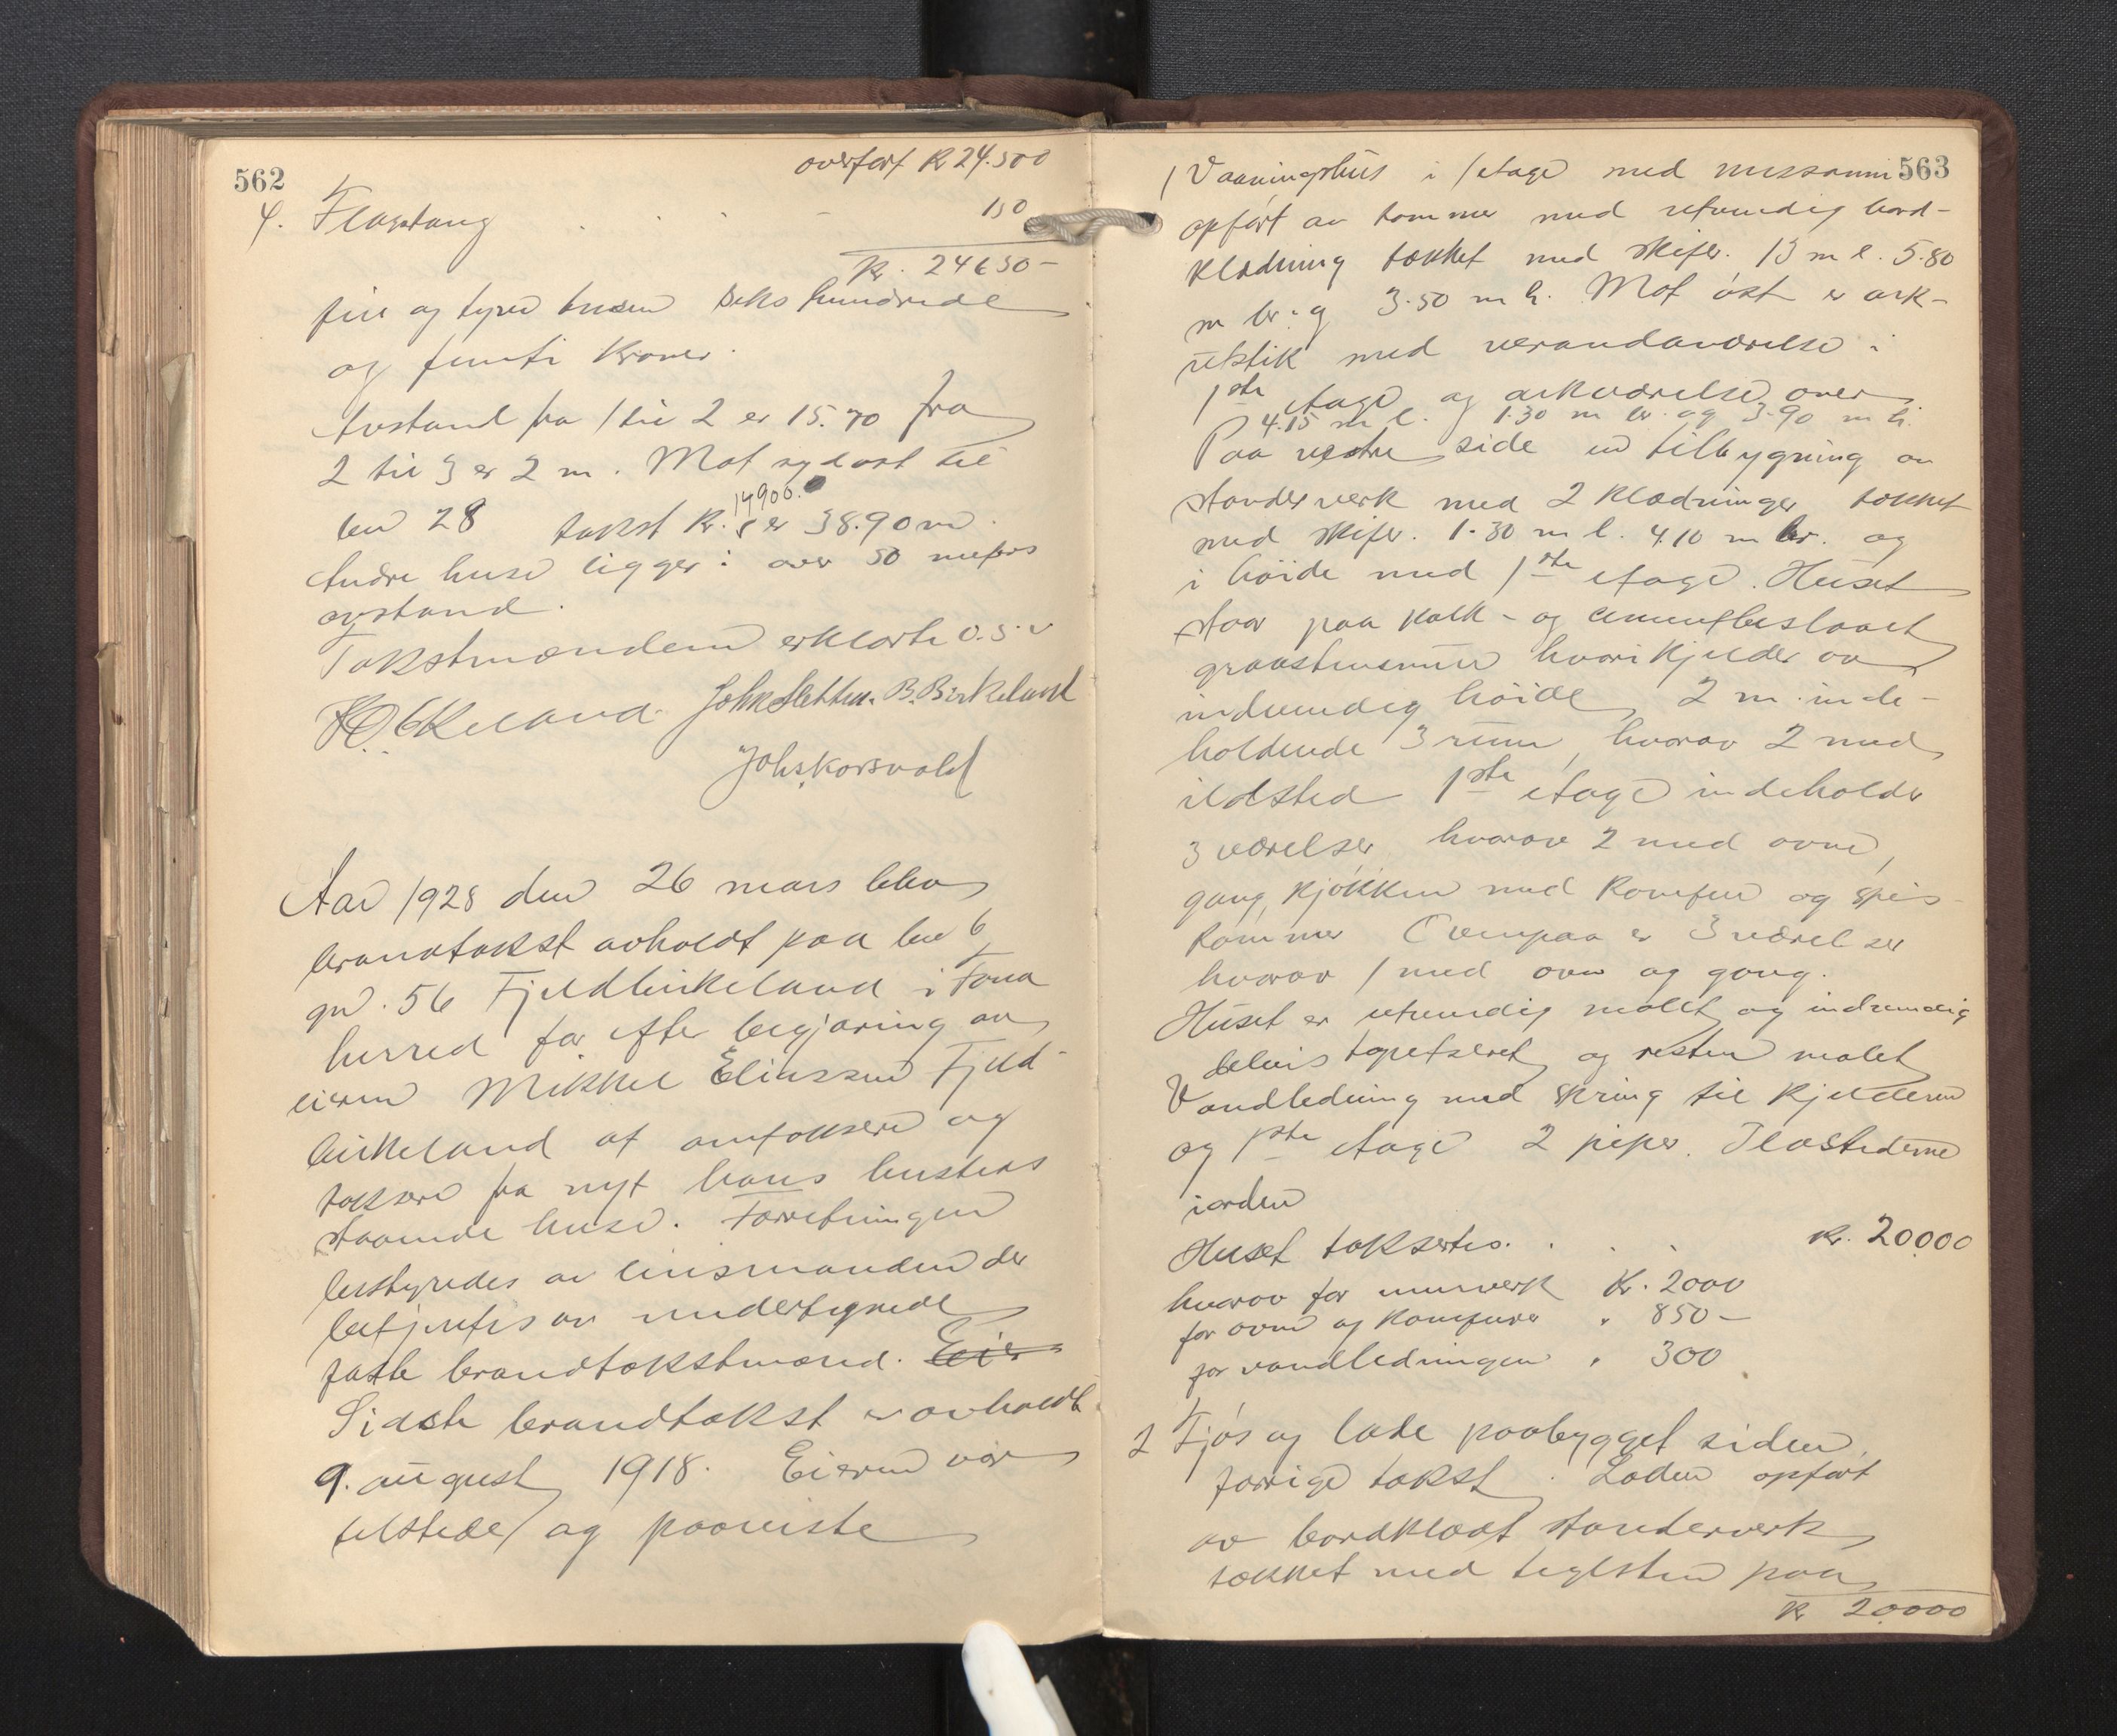 562
overført Kr 24.500
4. Flagstang . . - 150
Kr. 24650-
fire og tyve tusen seks hundrede
og femti kroner.
Avstand fra 1 til 2 er 15.70 fra
2 til 3 er 2 m. Mot sydost til
bn 28 takst Kr. 14900. er 38.90 m.
Andre huse ligger i over 50 meters
avstand.
Takstmændene erklærte o.s.v
John Sletten. B. Birkeland
Johs Korsvold
Aar 1928 den 26 mars blev
brandtakst avholdt paa bn 6
gn. 56 Fjeldbirkeland i Fana
herred for efter begjæring av
eieren Mikkel Eliassen Fjeld-
birkeland at omtaksere og
taksere fra nyt hans husteds
staaende huse. Forretningen
bestyredes av lensmanden der
betjentes av undertegnede
faste brandtakstmænd. Eier
Sidste brandtakst er avholdt
9. august 1918. Eieren var
tilstede og paaviste
563
1 Vaaningshus i 1 etage med messanin
opført av tømmer med utvendig bord-
klædning tækket med skifer. 13 m l. 5.80
m br. og 3.50 m h. Mot øst er ark-
utstik med verandaværelse i
1ste etage og arkværelse over
4.15 m l. 1.30 m br. og 3.90 m h.
Paa vestre side en tilbygning av
standerverk med 2 klædninger tækket
med skifer. 1.30 m l. 4.10 m br. og
i høide med 1ste etage. Huset
staar paa kalk- og cementbeslaaet
graastensmur hvori kjelder av
indvendig høide 2 m. inde-
holdende 3 rum, hvorav 2 med
ildsted 1ste etage indeholder
3 værelser hvorav 2 med ovne,
gang, kjøkken med komfur og spis-
kammer Ovenpaa er 3 værelser
hvorav 1 med ovn og gang.
Huset er utvendig malet og indvendig
delvis tapetseret og resten malet
Vandledning med kring til kjelderen
og 1ste etage 2 piper. Ildstederne
iorden
Huset takseres. . . . Kr. 20.000
hvorav for murverk Kr. 2000
for ovne og komfurer " 850-
for vandledningen " 300
2 Fjøs og lade paabygget siden
forrige takst. Laden opført
av bordklædt standerverk
tækket med teglsten paa
Kr 20.000